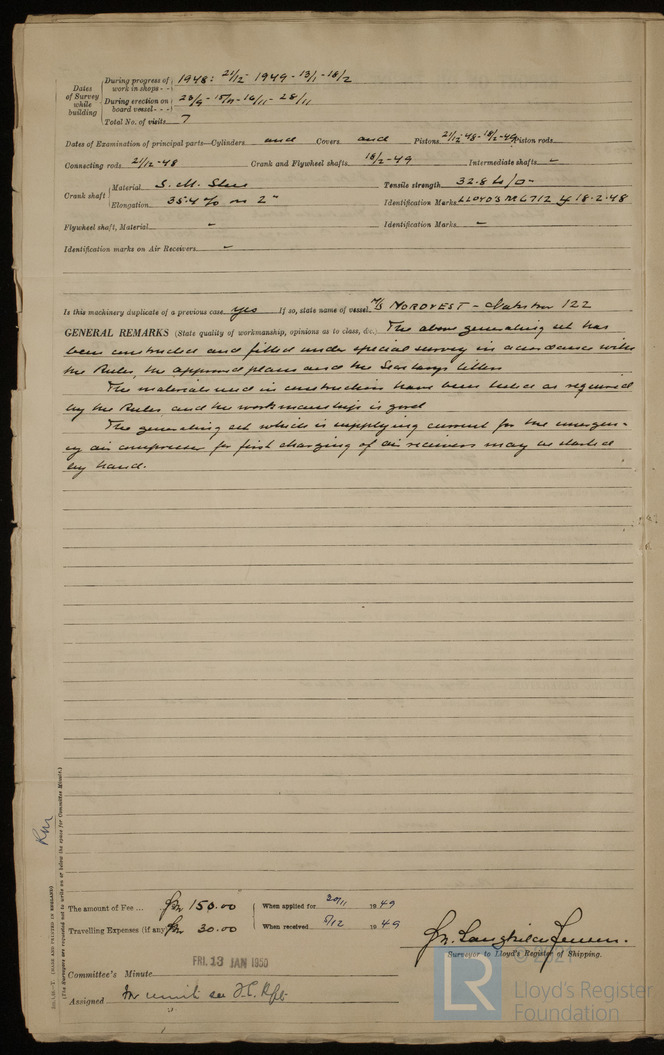 Dates of Survey while building
During progress of work in shops - - 1948: 21/12 1949 - 13/1 - 18/2
During erection on board vessel - - - 23/9 - 15/11 - 16/11 - 28/11
Total No. of visits 7
Dates of Examination of principal parts—Cylinders and Covers and Pistons 21/12-48-18/2-49 Piston rods
Connecting rods 21/12-48 Crank and Flywheel shafts 18/2-49 Intermediate shafts -
Crank shaft Material S. M. Steel Tensile strength 32.8
Elongation 35.4 % on 2" Identification Marks LLOYDS 18.2.48
Flywheel shaft, Material - Identification Marks -
Identification marks on Air Receivers -
Is this machinery duplicate of a previous case yes If so, state name of vessel M/S NORDVEST - 122
GENERAL REMARKS (State quality of workmanship, opinions as to class, &c. The above generating set has
been constructed and fitted under special survey in accordance with
the Rules, the approved plans and the Secretary's letters
The materials used in construction have been tested as required
by the Rules and the workmanship is good
The generating set which is supplying current for the emergen-
cy air compressor for first charging of air receivers may be started
by hand.
The amount of Fee ... Kr 150.00 When applied for 30/11 1949
Travelling Expenses (if any) Kr 30.00 When received /12 1949
Surveyor to Lloyd's Register of Shipping.
FRI. 13 JAN 1950
Committee's Minute
Assigned see F.E. Rpt.
(MADE AND PRINTED IN ENGLAND)
(The Surveyors are requested not to write on or below the space for Committee Minute.)
© 2021
LR Lloyd's Register
Foundation